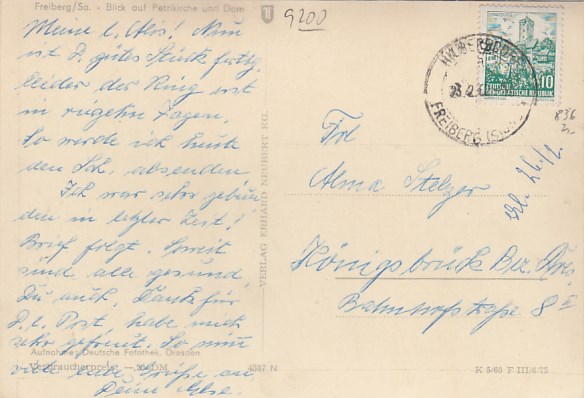 Freiberg/Sa. - Blick auf Petrikirche und Dom
9200
Meine l. Nun
ist D. gutes Stück fertig,
leider der Ring erst
in Tagen.
So werde ich heute
den Sch. absenden
Ich war sehr gebun-
den in letzter Zeit!
Brief folgt. Soweit
sind alle gesund,
Du auch. Dank für
D. l. Post, habe mich
sehr gefreut. So nun
viele liebe Grüße an
Deine
Aufnahme: Deutsche Fotothek, Dresden
Verbraucherpreis DM
4387 N
VERLAG ERHARD NEUBERT KG.
HALSBRÜCKE
FREIBERG (SACHS)
10
DEUTSCHE
DEMOKRATISCHE REPUBLIK
836
Frl
Alma Stelzer
Königsbrück Bez. Dres.
Bahnhofstraße 8 II
26./2.
K 5/60 F III/6/75